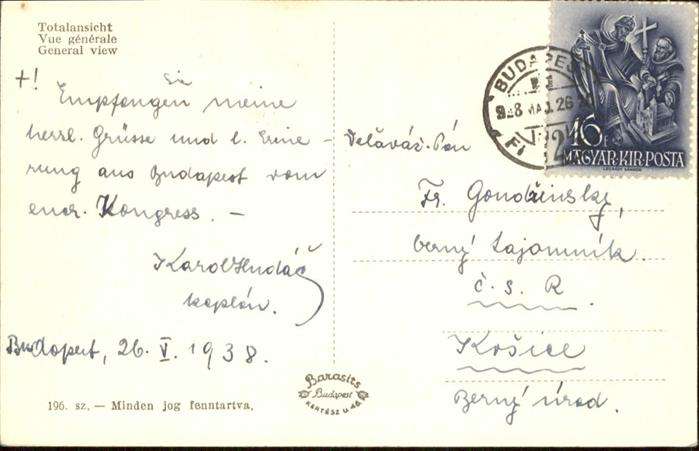 Totalansicht
Vue générale
General view
+!
Sie
Empfangen meine
herrl. Grüsse und l. Erinne-
rung aus Budapest vom
euch. Kongress. —
Karol Hudáč
kaplán.
Budapest, 26. V. 1938.
196. sz. — Minden jog fenntartva.
Barasits
Budapest
KERTÉSZ U. 46
BUDAPEST
938 MÁJ. 26
16 f
MAGYAR·KIR·POSTA
LÉGRÁDY SÁNDOR
Veľaváž. Pán
Fr. Gondžinský,
berný tajomník
č. s. R.
Košice
Berný úrad.